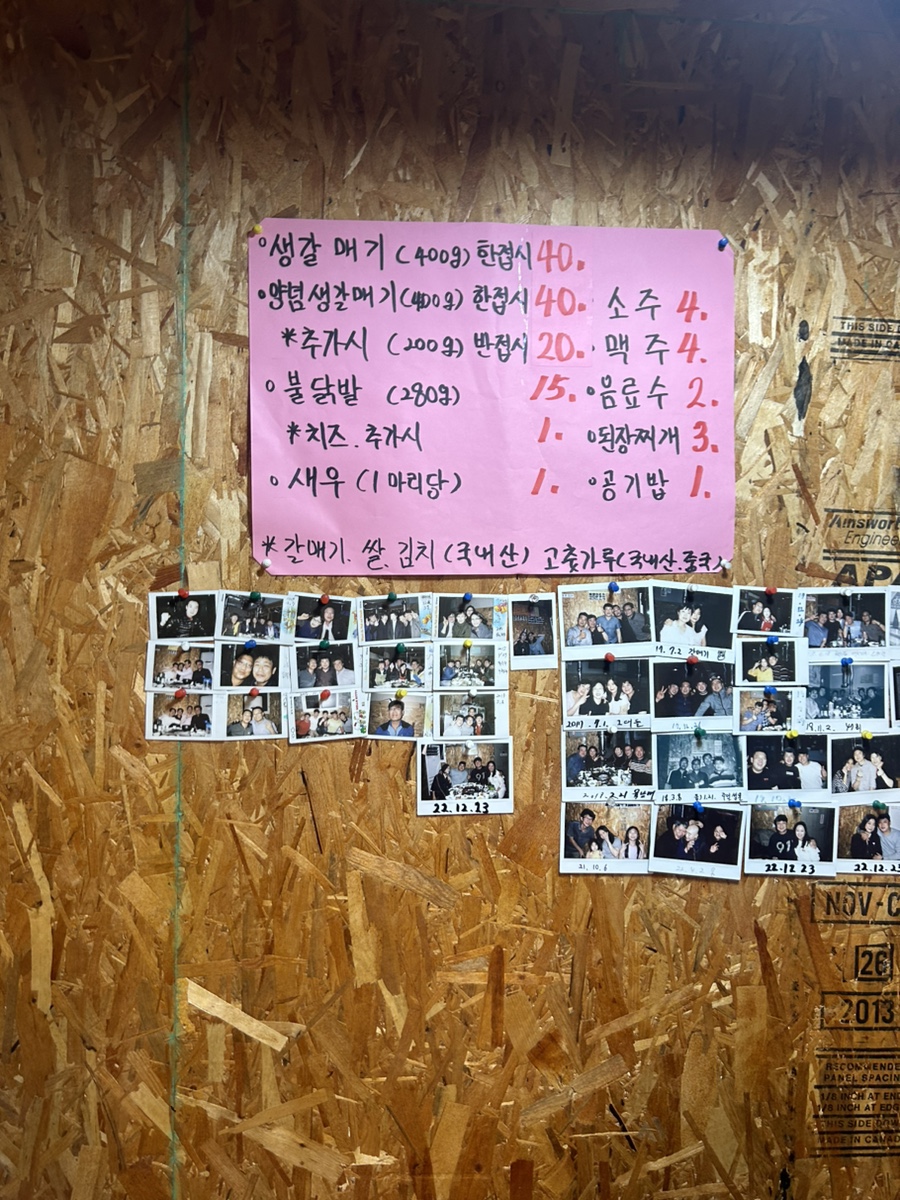 ○생갈매기 (400g) 한접시 40.
○양념생갈매기 (400g) 한접시 40.
*추가시 (200g) 반접시 20.
○불닭발 (280g) 15.
*치즈.추가시 1.
○새우 (1마리당) 1.
소주 4.
맥주 4.
○음료수 2.
○된장찌개 3.
○공기밥 1.
*갈매기. 쌀. 김치 (국내산) 고춧가루(국내산.중국)
THIS SIDE D
MADE IN CA
Ainswor
Enginee
APA
22.12.23
19.7.2
19.11.2.
21.10.6
22.12.23
22.12.23
NOV-C
26
2013
RECOMMENDE
PANEL SPACIN
1/8 INCH AT EN
1/8 INCH AT EDG
THIS SIDE DOW
MADE IN CANAD